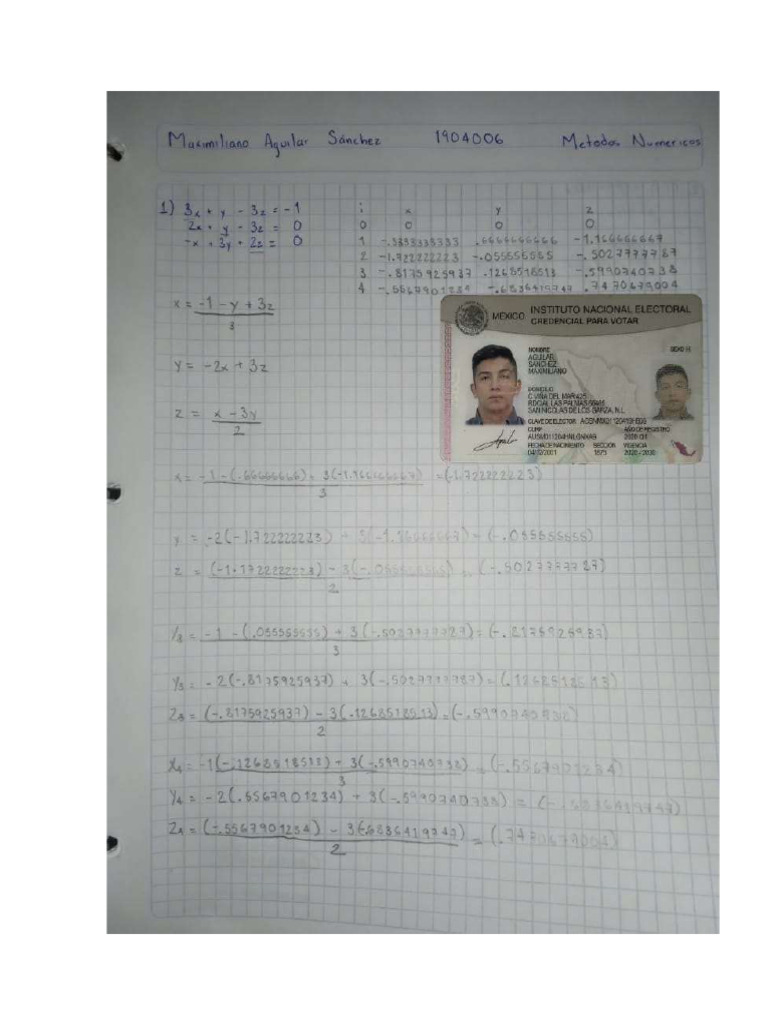 Maximiliano Aguilar Sánchez 1904006 Metodos Numericos
1) 3x + y - 3z = -1
2x + y - 3z = 0
-x + 3y + 2z = 0
i x y z
0 0 0 0
1 -.3333333333 .6666666666 -1.166666667
2 -1.722222223 -.055555555
3 -.8175925937 .1268518513 -.5990740738
4 -.5567901234 -.6836419747 .7470679004
x = -1 - y + 3z
3
y = -2x + 3z
z = x - 3y
2
MÉXICO INSTITUTO NACIONAL ELECTORAL
CREDENCIAL PARA VOTAR
NOMBRE
AGUILAR
SANCHEZ
MAXIMILIANO
SEXO H
DOMICILIO
C VIÑA DEL MAR 425
SAN NICOLAS DE LOS GARZA, N.L.
CLAVE DE ELECTOR
CURP
AÑO DE REGISTRO
FECHA DE NACIMIENTO SECCION VIGENCIA
04/12/2001 2020 - 2030
x = -1 - (.66666666) + 3(-1.166666667) = (-1.722222223)
3
y = -2(-1.722222223) + 3(-1.16666667) = (-.055555555)
z = (-1.1722222223) - 3(-.055555555) = (-.5027777727)
2
= -1 - (.055555555) + 3(-.5027777727) = (-.8175925937)
3
= -2(-.8175925937) + 3(-.5027777787) =
Z3 = (-.8175925937) - 3(.1268518513) = (-.5990740938)
2
X4 = -1(-.1268518513) + 3(-.5990740938) = (-.5567901234)
3
Y4 = -2(.5567901234) + 3(-.5990740738) =
Z4 = (-.5567901234) - 3(-.6836419747) = (.7470679004)
2